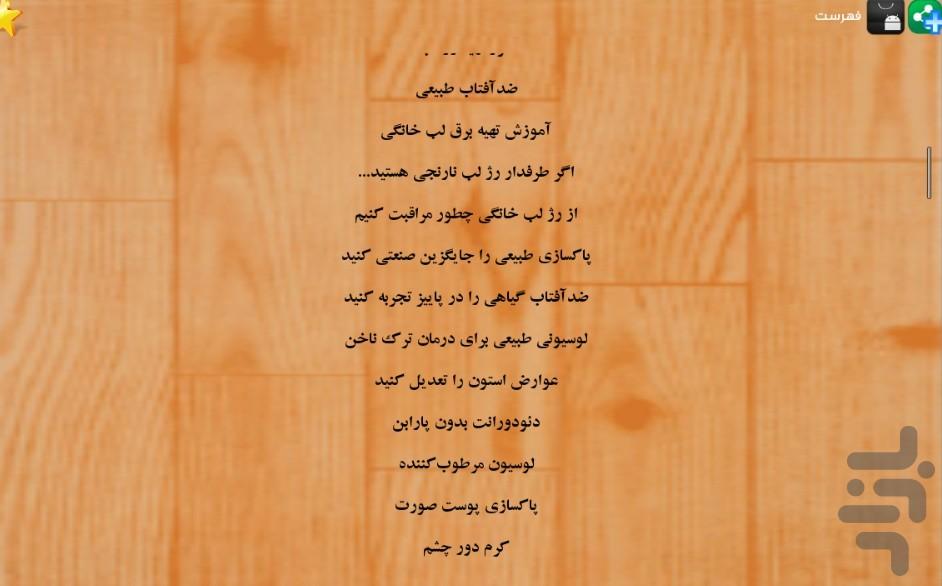 فهرست
ضدآفتاب طبیعی
آموزش تهیه برق لب خانگی
اگر طرفدار رژ لب نارنجی هستید...
از رژ لب خانگی چطور مراقبت کنیم
پاکسازی طبیعی را جایگزین صنعتی کنید
ضدآفتاب گیاهی را در پاییز تجربه کنید
لوسیونی طبیعی برای درمان ترک ناخن
عوارض استون را تعدیل کنید
دئودورانت بدون پارابن
لوسیون مرطوب‌کننده
پاکسازی پوست صورت
کرم دور چشم
بازار